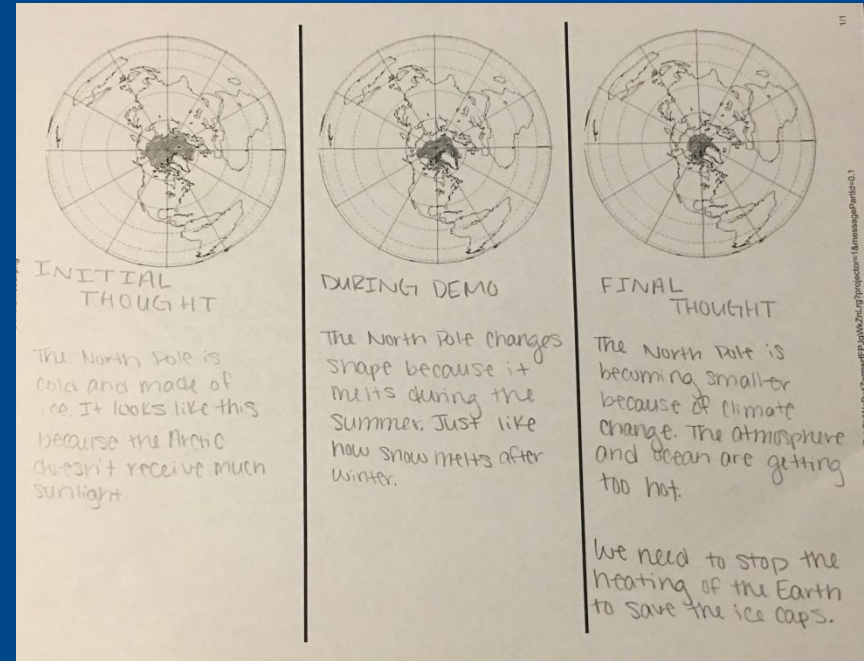 1/1
INITIAL
THOUGHT
The North Pole is
cold and made of
ice. It looks like this
because the Arctic
doesn't receive much
sunlight
DURING DEMO
The North Pole Changes
shape because it
melts during the
summer. Just like
how snow melts after
winter.
FINAL
THOUGHT
The North Pole is
becoming smaller
because of climate
change. The atmosphere
and ocean are getting
too hot.
We need to stop the
heating of the Earth
to save the ice caps.